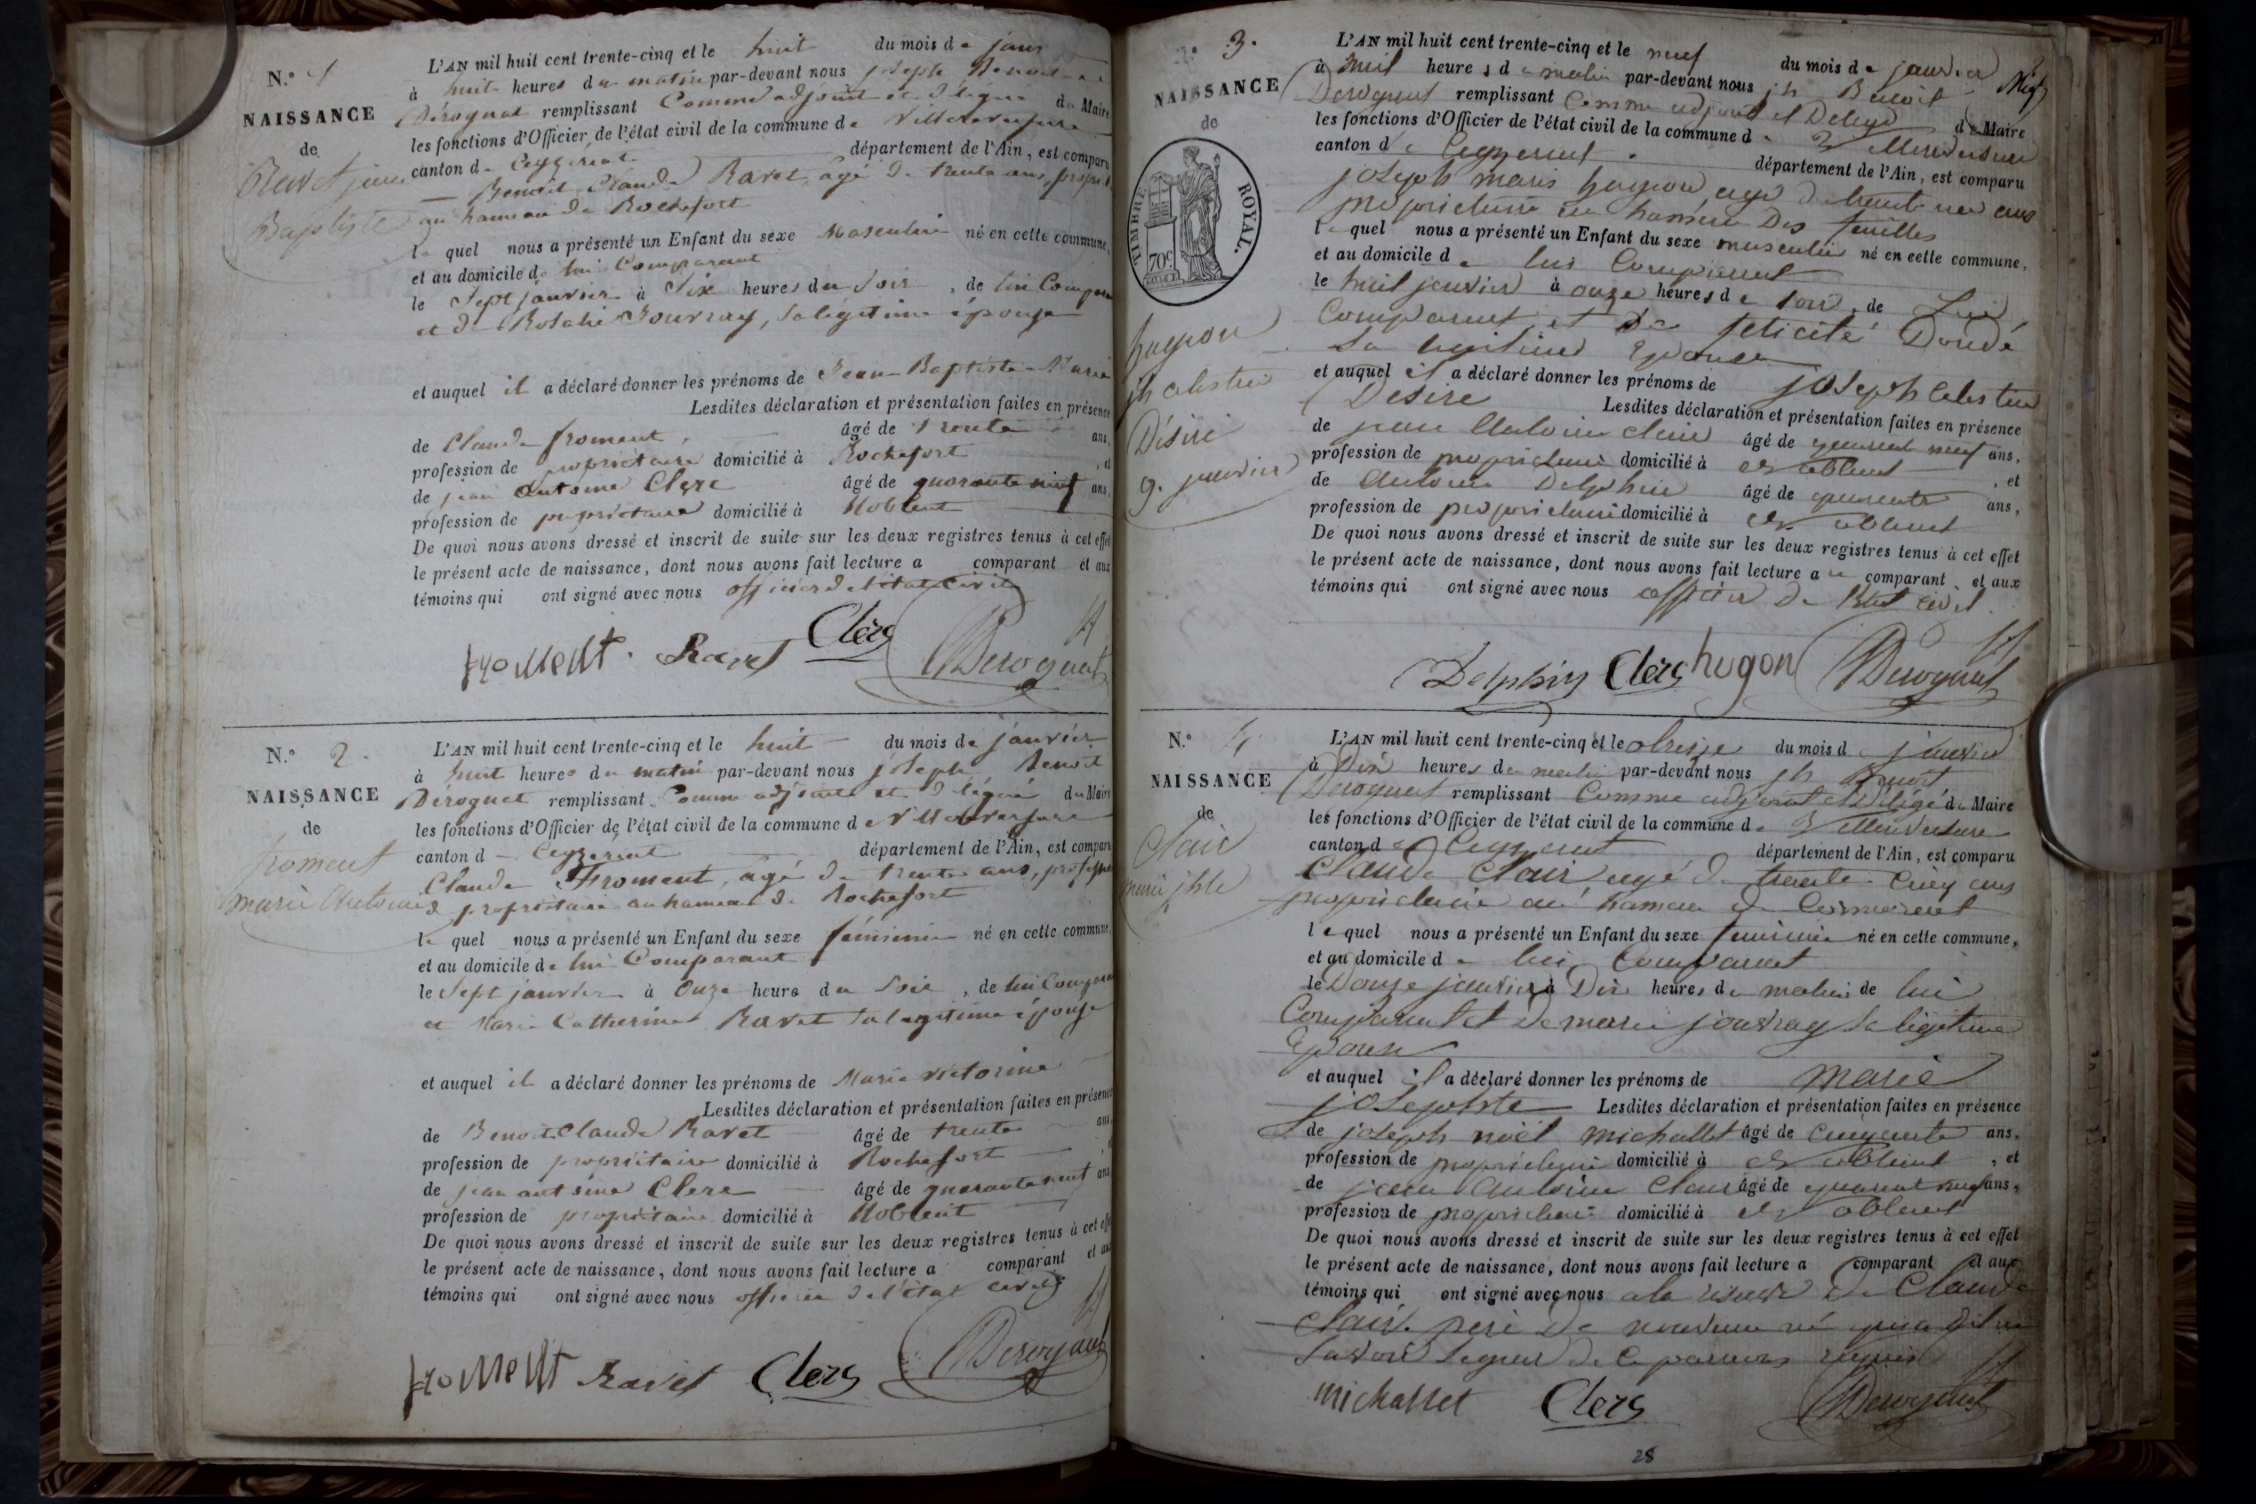 N.º 1
NAISSANCE
de
Ravet jean
Baptiste
L'AN mil huit cent trente-cinq et le huit du mois de janv
à huit heures du matin par-devant nous joseph Benoit
Dérognat remplissant Comme adjoint et délégué du Maire
les fonctions d'Officier de l'état civil de la commune de Villereversure
canton de Ceyzériat département de l'Ain, est comparu
Benoit Claude Ravet, âgé de trente ans, propri
au hameau de Rochefort
le quel nous a présenté un Enfant du sexe Masculin né en cette commune,
et au domicile de lui Comparant
le Sept janvier à Six heures du Soir, de lui Compara
et de Rosalie Jourray, sa légitime épouse
et auquel il a déclaré donner les prénoms de Jean-Baptiste-Marie
Lesdites déclaration et présentation faites en présence
de Claude froment, âgé de trente ans,
profession de propriétaire domicilié à Rochefort, et
de jean antoine Clerc âgé de quarante neuf ans,
profession de propriétaire domicilié à Noblent
De quoi nous avons dressé et inscrit de suite sur les deux registres tenus à cet effet
le présent acte de naissance, dont nous avons fait lecture a comparant et aux
témoins qui ont signé avec nous officier de l'état civil
froment. Ravet Clerc Derognat
N.º 2.
NAISSANCE
de
froment
marie
L'AN mil huit cent trente-cinq et le huit du mois de janvier
à huit heures du matin par-devant nous joseph Benoit
Dérognat remplissant Comme adjoint et délégué du Maire
les fonctions d'Officier de l'état civil de la commune de Villereversure
canton d Ceyzériat département de l'Ain, est comparu
Claude Froment, âgé de trente ans, profession
de propriétaire au hameau de Rochefort
le quel nous a présenté un Enfant du sexe féminin né en cette commune,
et au domicile de lui Comparant
le Sept janvier à Onze heure du Soir, de lui Compara
et Marie Catherine Ravet sa légitime épouse
et auquel il a déclaré donner les prénoms de Marie victorine
Lesdites déclaration et présentation faites en présence
de Benoit Claude Ravet âgé de trente ans
profession de propriétaire domicilié à Rochefort
de jean antoine Clerc âgé de quarante neuf ans
profession de propriétaire domicilié à Noblent
De quoi nous avons dressé et inscrit de suite sur les deux registres tenus à cet effet
le présent acte de naissance, dont nous avons fait lecture a comparant et aux
témoins qui ont signé avec nous officier de l'état civil
froment Ravet Clerc Derognat
3.
NAISSANCE
de
TIMBRE ROYAL.
70c
hugon
jh celestin
Désiré
9. janvier
L'AN mil huit cent trente-cinq et le neuf du mois de janvier
à huit heures de matin par-devant nous jh Benoit
Derognat remplissant Comme adjoint et Delegué de Maire
les fonctions d'Officier de l'état civil de la commune d Villereversure
canton de Ceyzeriat département de l'Ain, est comparu
joseph marie hugon agé de trente ans
propriétaire au hameau Des feuilles
le quel nous a présenté un Enfant du sexe masculin né en cette commune,
et au domicile de lui Comparant
le huit janvier à onze heures de soir, de Lui
Comparant et De félicité Doudé
Sa légitime Epouse
et auquel il a déclaré donner les prénoms de joseph Celestin
Desiré Lesdites déclaration et présentation faites en présence
de jean Antoine Clerc âgé de quarante neuf ans,
profession de propriétaire domicilié à Noblent, et
de Antoine Delphin âgé de quarente ans,
profession de propriétaire domicilié à Noblent
De quoi nous avons dressé et inscrit de suite sur les deux registres tenus à cet effet
le présent acte de naissance, dont nous avons fait lecture au comparant et aux
témoins qui ont signé avec nous officier de l'état civil.
Delphin Clerc hugon Derognat
N.º 4
NAISSANCE
de
Clair
marie jphte
L'AN mil huit cent trente-cinq et le du mois d janvier
à Dix heures de matin par-devant nous jh Benoit
Derognat remplissant Comme adjoint et Délégé de Maire
les fonctions d'Officier de l'état civil de la commune de Villereversure
canton de Ceyzeriat département de l'Ain, est comparu
Claude Clair agé de trente Cinq ans
propriétaire au hameau de
le quel nous a présenté un Enfant du sexe feminin né en cette commune,
et au domicile de lui Comparant
le Douze janvier à Dix heures de matin de lui
Comparant et de marie jourray Sa légitime
Epouse
et auquel il a déclaré donner les prénoms de marie
josephte Lesdites déclaration et présentation faites en présence
de joseph noël michallet âgé de Cinquante ans,
profession de propriétaire domicilié à Noblent, et
de jean Antoine Clair âgé de quarante neuf ans,
profession de propriétaire domicilié à Noblent
De quoi nous avons dressé et inscrit de suite sur les deux registres tenus à cet effet
le présent acte de naissance, dont nous avons fait lecture a comparant et aux
témoins qui ont signé avec nous a la reserve de Claude
Clair. pere de nouveau né qui a dit ne
Savoir Signer de Ce par nous requis
michallet Clerc Derognat
28